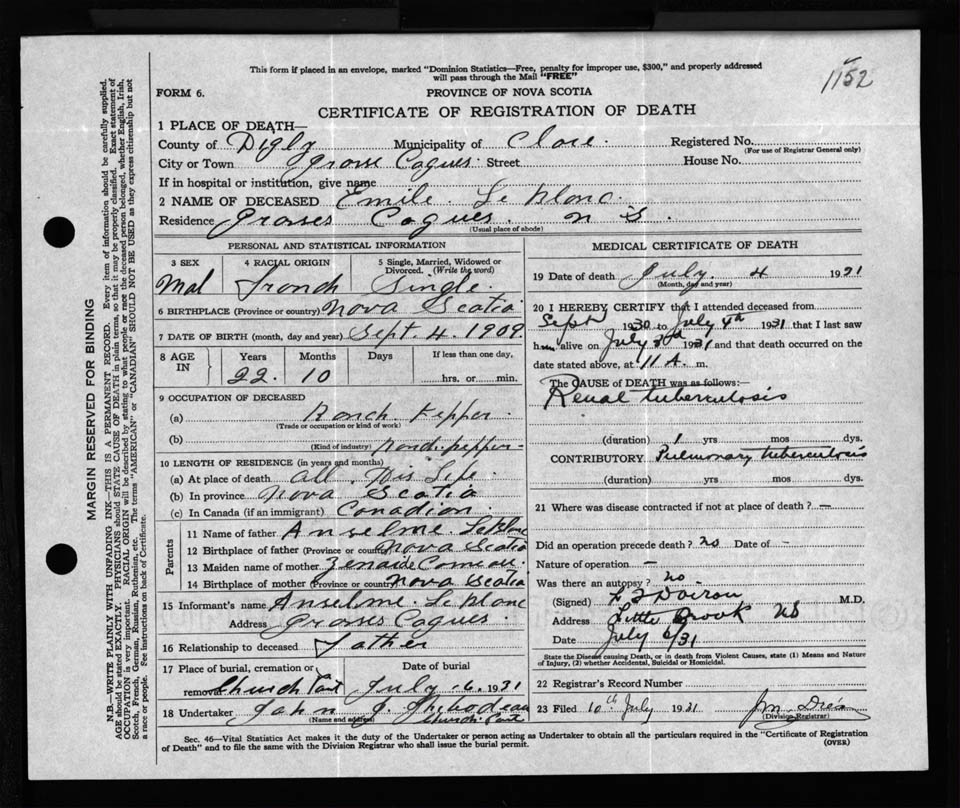 This form if placed in an envelope, marked "Dominion Statistics—Free, penalty for improper use, $300," and properly addressed
will pass through the Mail "FREE"
1152
FORM 6.
PROVINCE OF NOVA SCOTIA
CERTIFICATE OF REGISTRATION OF DEATH
1 PLACE OF DEATH—
County of Digby Municipality of Clare. Registered No.
(For use of Registrar General only)
City or Town Grosse Coques. Street House No.
If in hospital or institution, give name
2 NAME OF DECEASED Emile Le blanc.
Residence Grosses Coques. n S.
(Usual place of abode)
PERSONAL AND STATISTICAL INFORMATION
3 SEX 4 RACIAL ORIGIN 5 Single, Married, Widowed or Divorced. (Write the word)
Mal French Single
6 BIRTHPLACE (Province or country) Nova Scotia
7 DATE OF BIRTH (month, day and year) Sept. 4. 1909
8 AGE IN Years Months Days If less than one day,
22. 10 hrs. or min.
9 OCCUPATION OF DECEASED
(a) Ranch Kepper
(Trade or occupation or kind of work)
(b)
(Kind of industry)
10 LENGTH OF RESIDENCE (in years and months)
(a) At place of death all His Life
(b) In province Nova Scotia
(c) In Canada (if an immigrant) Canadian
Parents
11 Name of father Anselme LeBlanc
12 Birthplace of father (Province or country) Nova Scotia
13 Maiden name of mother Zenaide Comeau
14 Birthplace of mother (Province or country) Nova Scotia
15 Informant's name Anselme Le blanc
Address Grosses Coques
16 Relationship to deceased Father
17 Place of burial, cremation or removal Church Point
Date of burial July 6. 1931
18 Undertaker John J. Thibodeau
(Name and address) Church Point
MEDICAL CERTIFICATE OF DEATH
19 Date of death July 4 1931
(Month, day and year)
20 I HEREBY CERTIFY that I attended deceased from
Sept 1930 to July 4th 1931 that I last saw
him alive on July 3rd 1931 and that death occurred on the
date stated above, at 11 A. m.
The CAUSE of DEATH was as follows:—
Renal tuberculosis
(duration) 1 yrs mos dys.
CONTRIBUTORY Pulmonary tuberculosis
(duration) yrs mos dys.
21 Where was disease contracted if not at place of death? —
Did an operation precede death? no Date of —
Nature of operation —
Was there an autopsy? no —
(Signed) Doiron M.D.
Address Little Brook NS
Date July 6/31
State the Disease causing Death, or in death from Violent Causes, state (1) Means and Nature
of Injury, (2) whether Accidental, Suicidal or Homicidal.
22 Registrar's Record Number
23 Filed 10th July 1931
(Division Registrar)
Sec. 46—Vital Statistics Act makes it the duty of the Undertaker or person acting as Undertaker to obtain all the particulars required in the "Certificate of Registration
of Death" and to file the same with the Division Registrar who shall issue the burial permit.
(OVER)
MARGIN RESERVED FOR BINDING
N.B.—WRITE PLAINLY WITH UNFADING INK—THIS IS A PERMANENT RECORD. Every item of information should be carefully supplied.
AGE should be stated EXACTLY. PHYSICIANS should STATE CAUSE OF DEATH in plain terms, so that it may be properly classified. Exact statement of
OCCUPATION is very important. RACIAL ORIGIN will be described by stating to what people or race the deceased person belonged, whether English, Irish,
Scotch, French, German, Russian, Ruthenian, etc. The terms "AMERICAN" or "CANADIAN" SHOULD NOT BE USED as they express citizenship but not
a race or people. See instructions on back of Certificate.